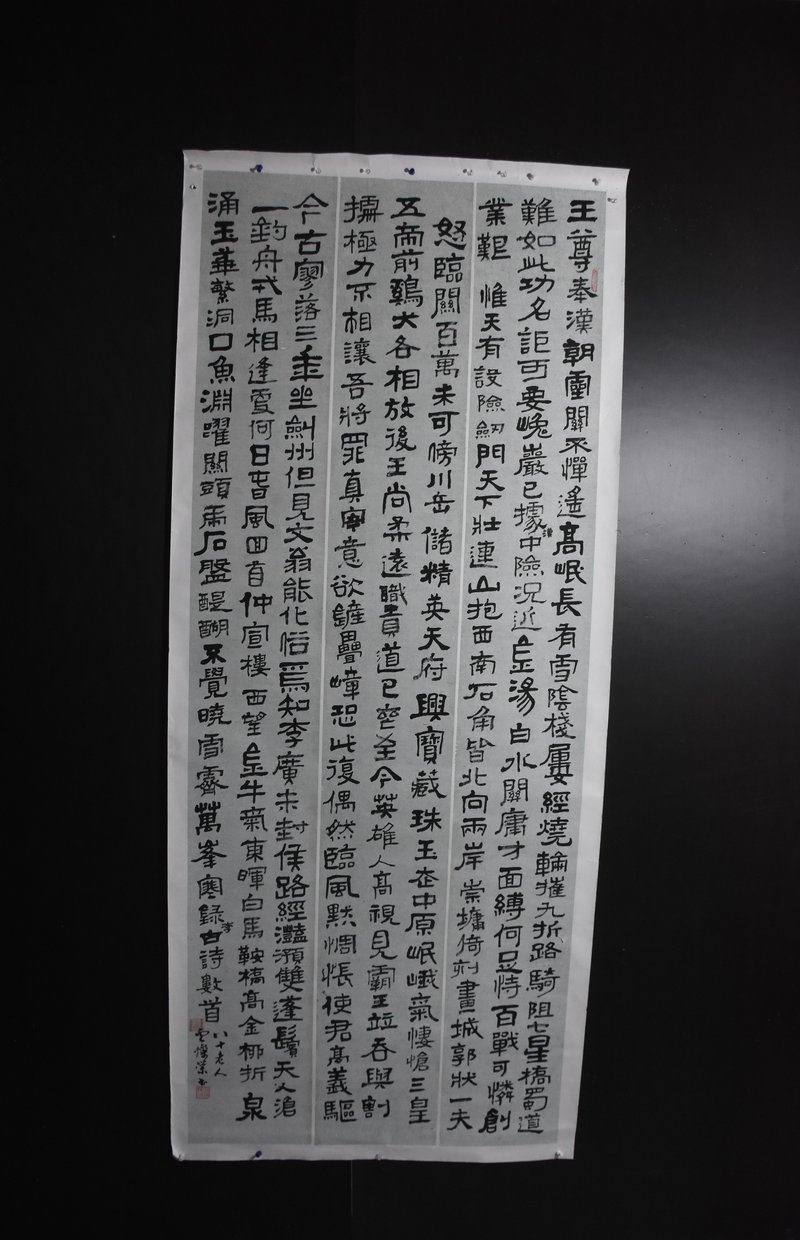 王尊奉漢朝靈關不憚遙高岷長有雪陰棧屢經燒輪摧九折路騎阻七星橋蜀道
難如此功名詎可要巖已據中險況近金湯白水關庸才面縛何足恃百戰可憐創
業艱 惟天有設險劍門天下壯連山抱西南石角皆北向兩岸崇墉倚刻畫城郭狀一夫
怒臨關百萬未可傍川岳儲精英天府興寶藏珠玉走中原岷峨氣悽愴三皇
五帝前鷄犬各相放後王尚柔遠職貢道已喪至今英雄人高視見霸王並吞與割
據極力不相讓吾將罪真宰意欲鏟疊嶂恐此復偶然臨風默惆悵使君高義驅
今古寥落三年坐劍州但見文翁能化俗焉知李廣未封侯路經灩澦雙蓬鬢天入滄
一釣舟戎馬相逢更何日春風回首仲宣樓 西望金牛氣東暉白馬鞍橋高金柳折泉
涌玉華繁洞口魚淵躍關頭馬石盤醍醐不覺曉雪霽萬峯寒錄古詩數首
八十老人